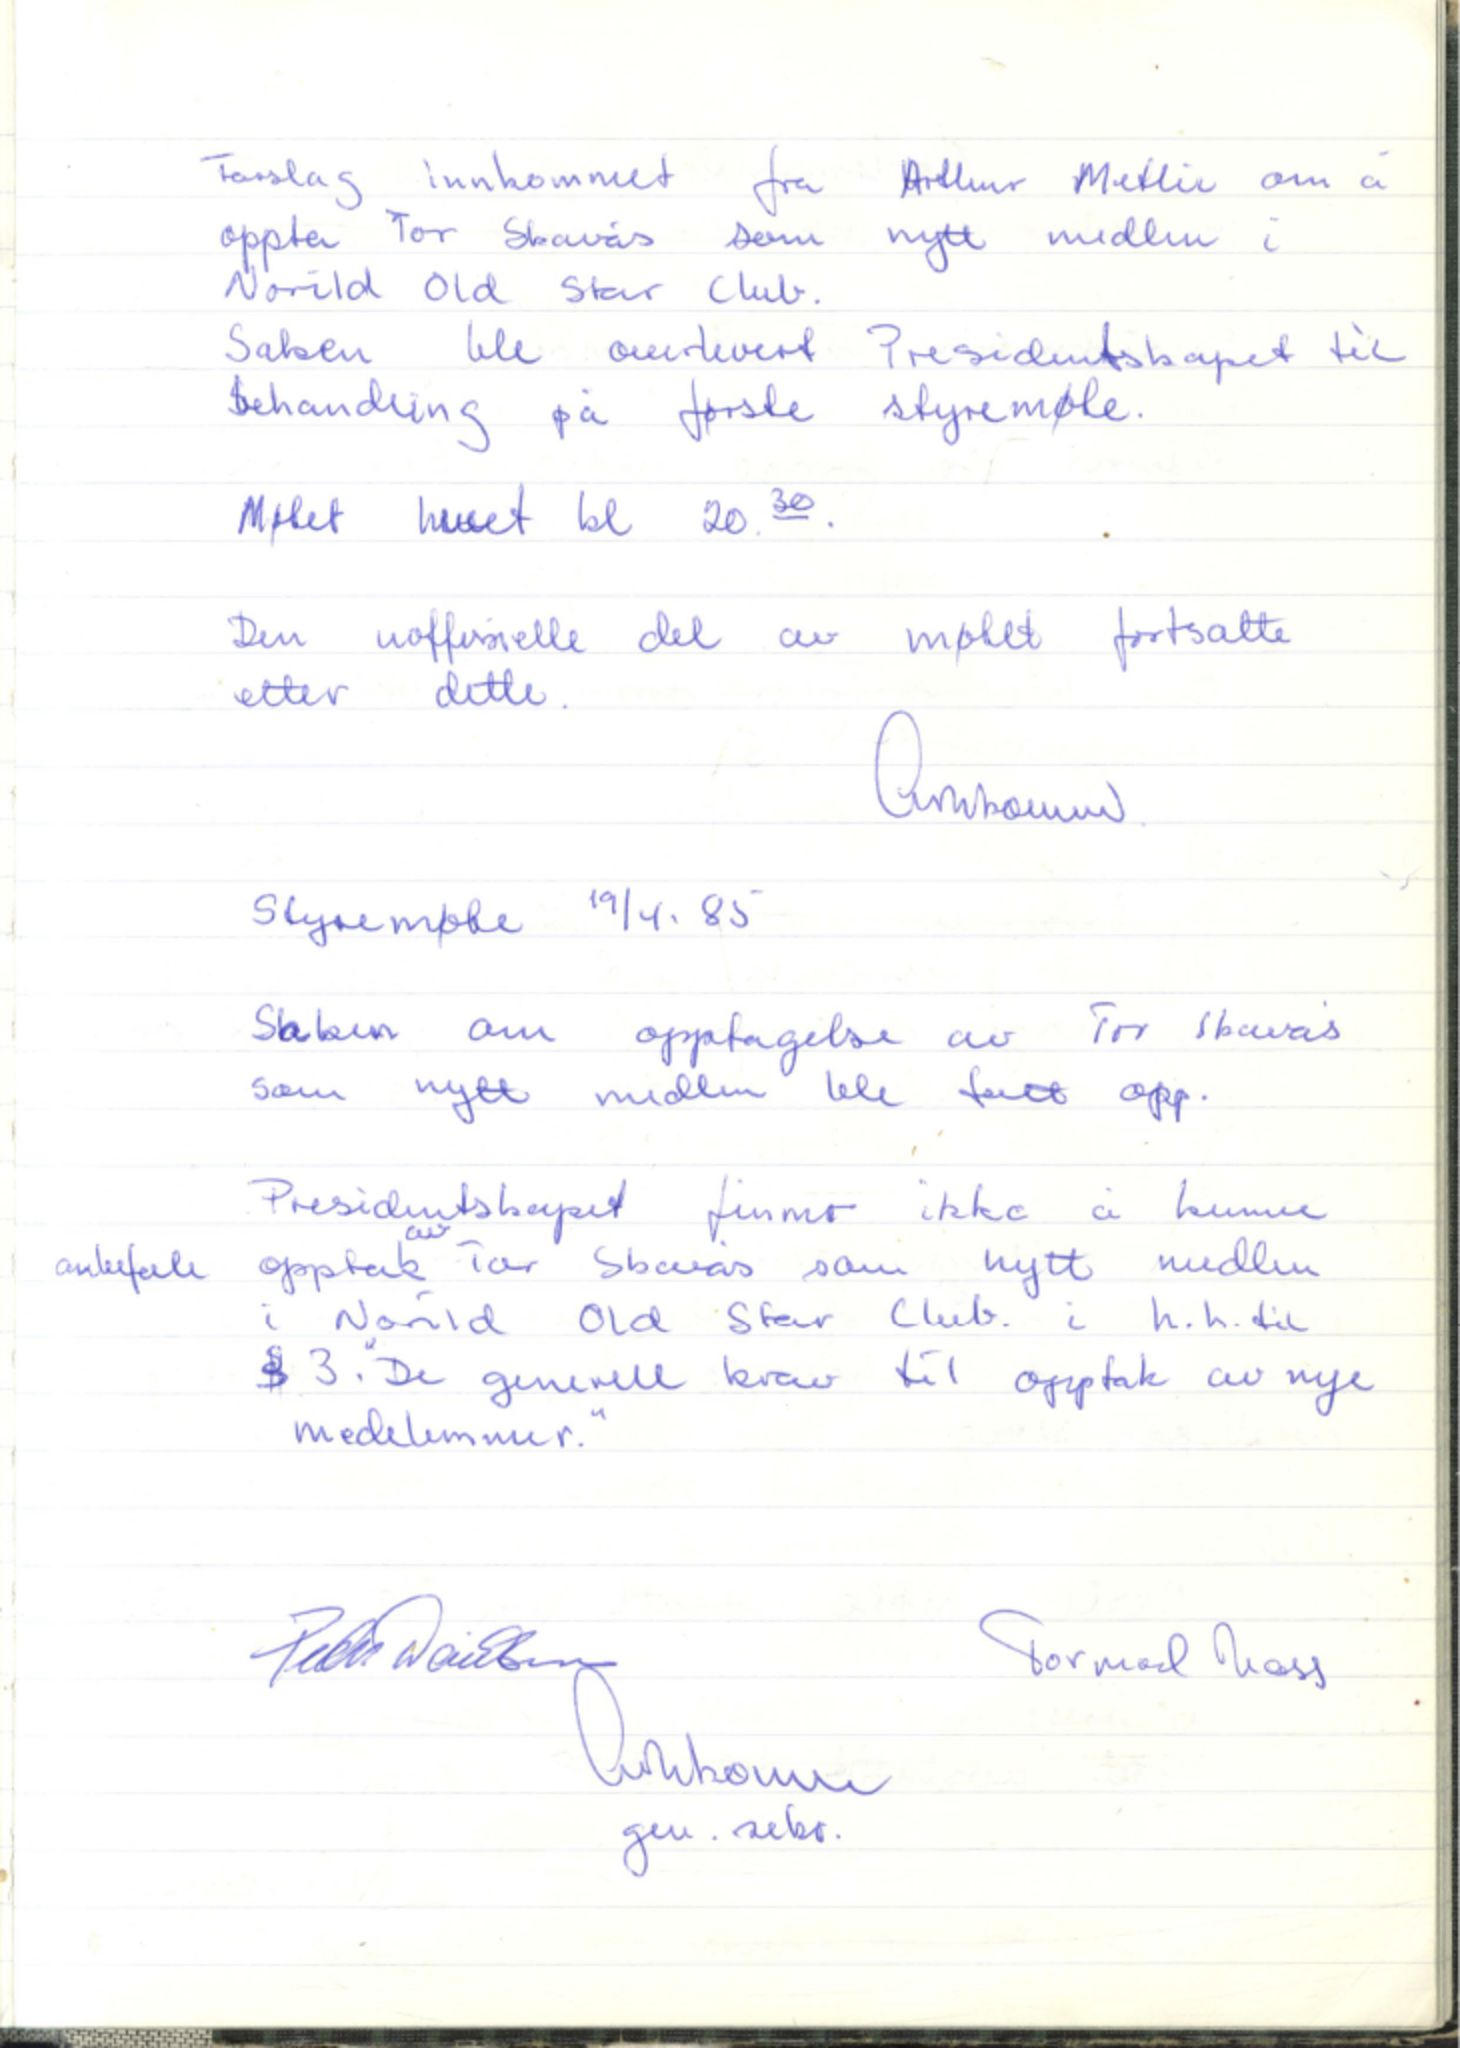 Forslag innkommet fra Arthur Metlie om å
oppta Tor Skavås som nytt medlem i
Norild Old Star Club.
Saken ble overlevert Presidentskapet til
behandling på første styremøte.
Møtet hevet kl 20.30.
Den uoffisielle del av møtet fortsatte
etter dette.
Styremøte 19/4. 85
Saken om opptagelse av Tor Skavås
som nytt medlem ble tatt opp.
Presidentskapet finner ikke å kunne
anbefale opptak av Tor Skavås som nytt medlem
i Norild Old Star Club. i h.h. til
§ 3. "De generell krav til opptak av nye
medelemmer."
Tormod Moss
gen. sekr.